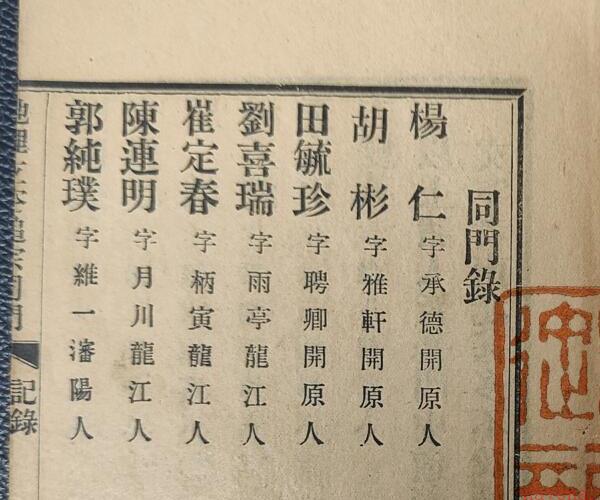 同門錄
楊仁 字承德開原人
胡彬 字雅軒開原人
田毓珍 字聘卿開原人
劉喜瑞 字雨亭龍江人
崔定春 字柄寅龍江人
陳連明 字月川龍江人
郭純璞 字維一瀋陽人
地理 宗同門 記錄